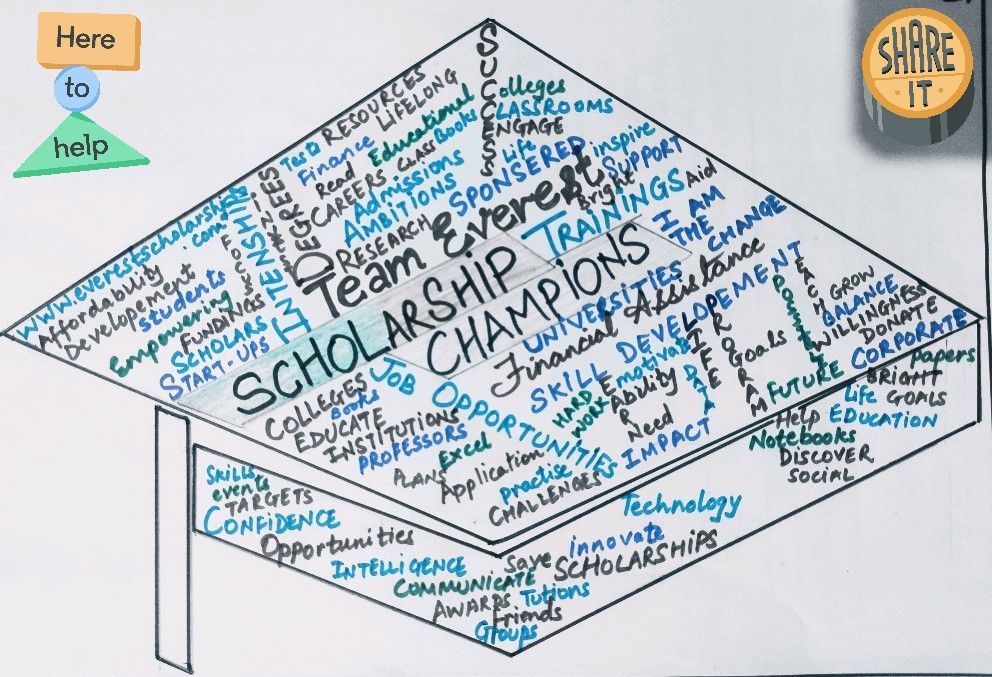 Here
to
help
SHARE
IT
SUCCESS
RESOURCES
LIFELONG
Colleges
CLASSROOMS
ENGAGE
Tests
Finance
Educational
Books
Read
CLASS
CAREERS
Admissions
AMBITIONS
Life
SPONSERED
inspire
SUPPORT
DEGREES
RESEARCH
Team Everest
Bright
Aid
TRAININGS
I AM
THE
CHANGE
www.everestscholarships
.com
Affordability
Development
students
Empowering
FUNDINGS
SCHOLARS
START-UPS
INTENSHIP
SCHOLARSHIP
CHAMPIONS
UNIVERSITIES
Financial Assistance
SKILL DEVELOPEMENT
JOB OPPORTUNITIES
COLLEGES
Books
EDUCATE
INSTITUTIONS
PROFESSORS
PLANS
Excel
Application
practise
CHALLENGES
HARD
WORK
motivate
Ability
Need
IMPACT
LIFE
DATA
PROGRAM
Goals
TEACH
GROW
BALANCE
WILLINGNESS
DONATE
CORPORATE
FUTURE
Papers
BRIGHT
Life GOALS
Help EDUCATION
Notebooks
DISCOVER
SOCIAL
SKILLS
events
TARGETS
CONFIDENCE
Opportunities
INTELLIGENCE
COMMUNICATE
AWARDS
Technology
innovate
Save
SCHOLARSHIPS
Tutions
Friends
Groups